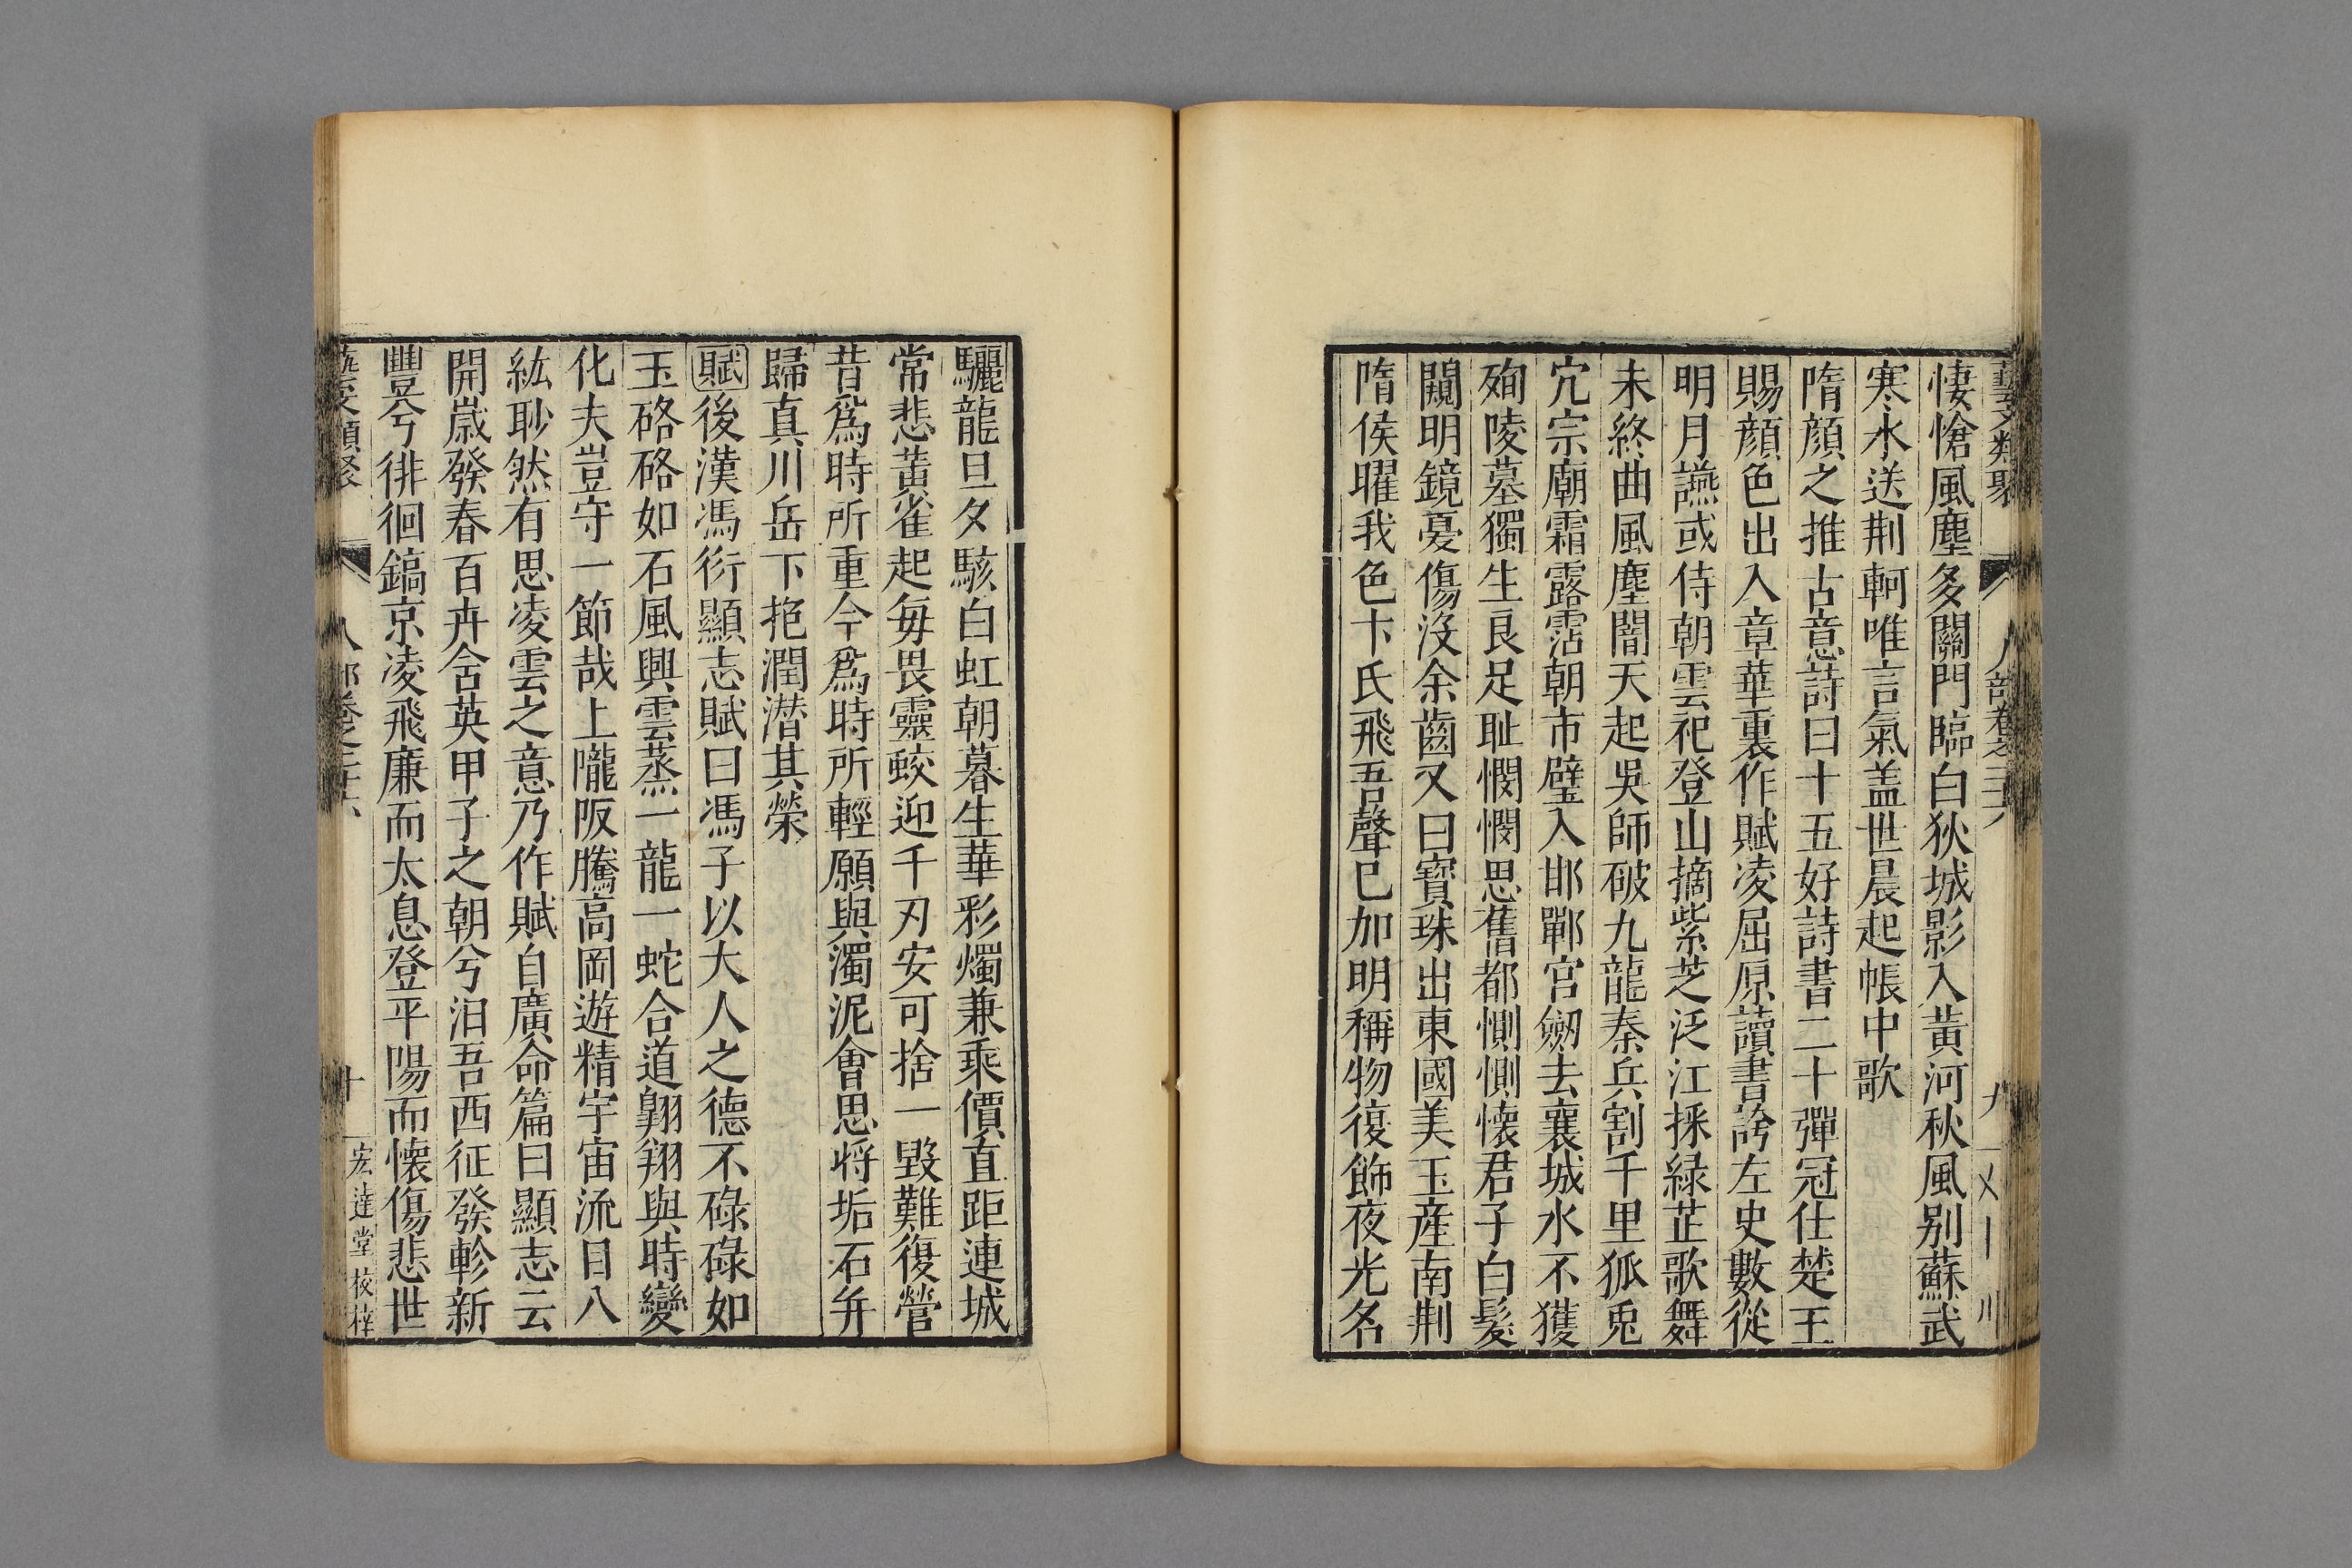 悽愴風塵多關門臨白狄城影入黃河秋風别蘇武
寒水送荆軻唯言氣盖世晨起帳中歌
隋顔之推古意詩曰十五好詩書二十彈冠仕楚王
賜顔色出入章華裏作賦凌屈原讀書誇左史數從
明月讌或侍朝雲祀登山摘紫芝泛江採緑芷歌舞
未終曲風塵闇天起吳師破九龍秦兵割千里狐兎
穴宗廟霜露霑朝市壁入邯鄲宫劒去襄城水不獲
殉陵墓獨生良足耻憫憫思舊都惻惻懷君子白髮
闚明鏡憂傷沒余齒又曰寳珠出東國美玉産南荆
隋侯曜我色卞氏飛吾聲已加明稱物復飾夜光名
驪龍旦夕駭白虹朝暮生華彩燭兼乘價直距連城
常悲黃雀起每畏靈蛟迎千刃安可捨一毁難復營
昔爲時所重今爲時所輕願與濁泥會思将垢石并
歸真川岳下抱潤潜其榮
賦後漢馮衍顯志賦曰馮子以大人之德不碌碌如
玉硌硌如石風興雲蒸一龍一蛇合道翺翔與時變
化夫豈守一節哉上隴阪騰高岡遊精宇宙流目八
紘眇然有思凌雲之意乃作賦自廣命篇曰顯志云
開嵗發春百卉含英甲子之朝兮汩吾西征發軫新
豐兮徘徊鎬京凌飛廉而太息登平陽而懷傷悲世
十
宏達堂校梓